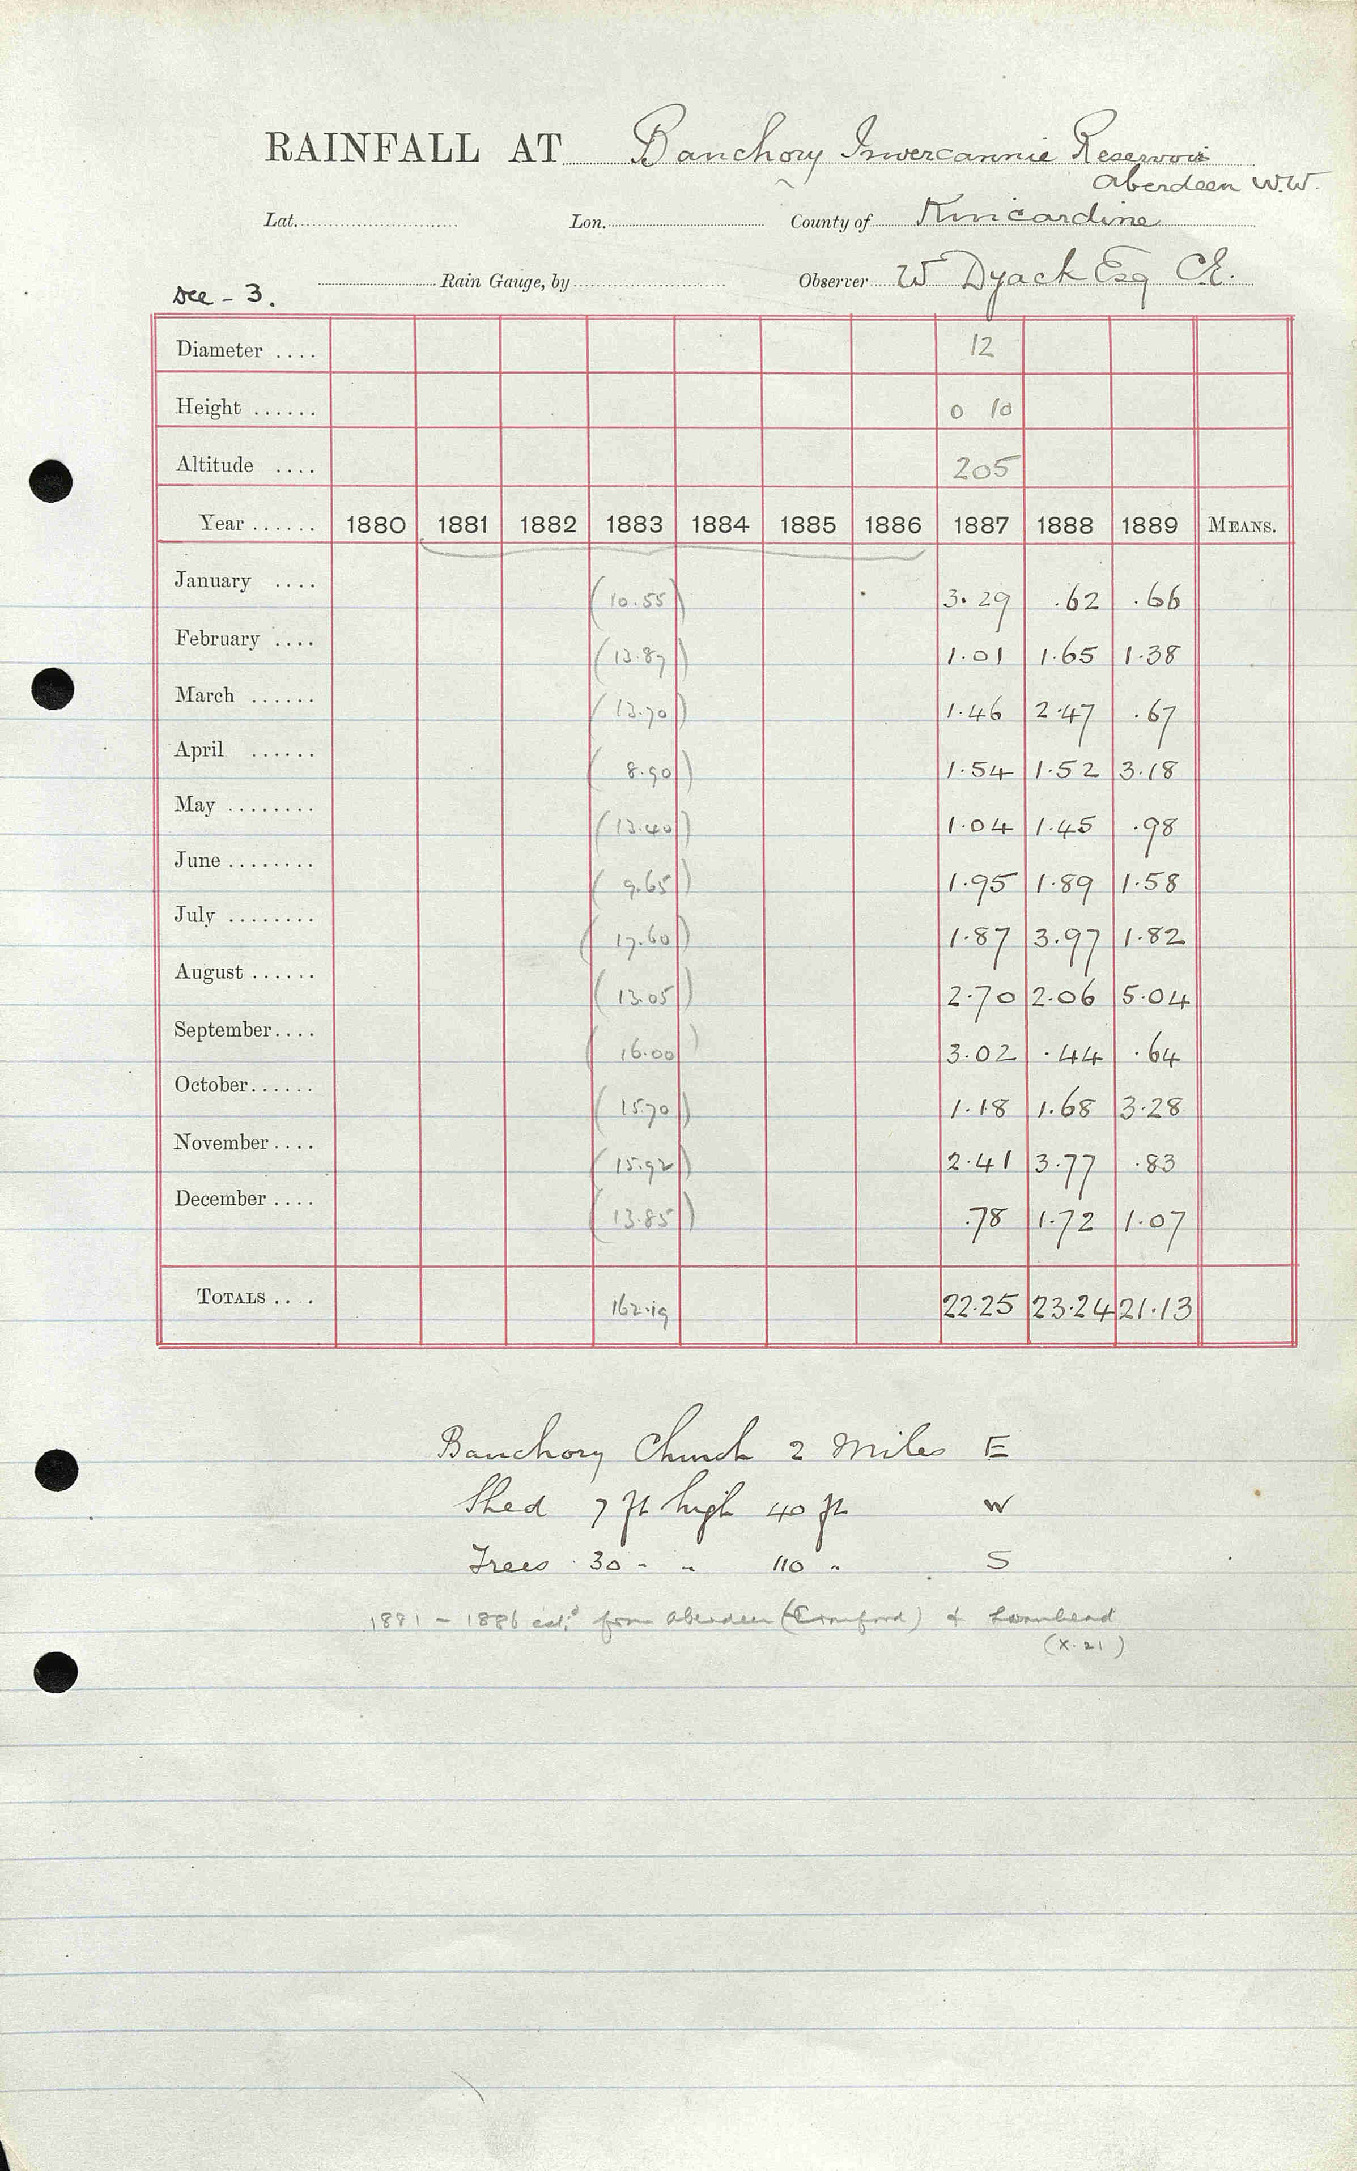 RAINFALL AT Banchory Invercannie Reservoir
Aberdeen W.W.
Lat. Lon. County of Kincardine
Dee - 3. Rain Gauge, by Observer W Dyack Esq C.E.
Diameter .... 12
Height ...... 0 10
Altitude .... 205
Year ...... 1880 1881 1882 1883 1884 1885 1886 1887 1888 1889 MEANS.
January .... (10.55) 3.29 .62 .66
February .... (13.87) 1.01 1.65 1.38
March ...... (13.70) 1.46 2.47 .67
April ...... (8.90) 1.54 1.52 3.18
May ........ (13.40) 1.04 1.45 .98
June ........ (9.65) 1.95 1.89 1.58
July ........ (17.60) 1.87 3.97 1.82
August ...... (13.05) 2.70 2.06 5.04
September.... (16.00) 3.02 .44 .64
October...... (15.70) 1.18 1.68 3.28
November.... (15.92) 2.41 3.77 .83
December .... (13.85) .78 1.72 1.07
TOTALS .... 162.19 22.25 23.24 21.13
Banchory Church 2 Miles E
Shed 7 ft high 40 ft W
Trees 30 " " 110 " S
1881 - 1886 estd. from Aberdeen (Cranford) &
(X. 21)